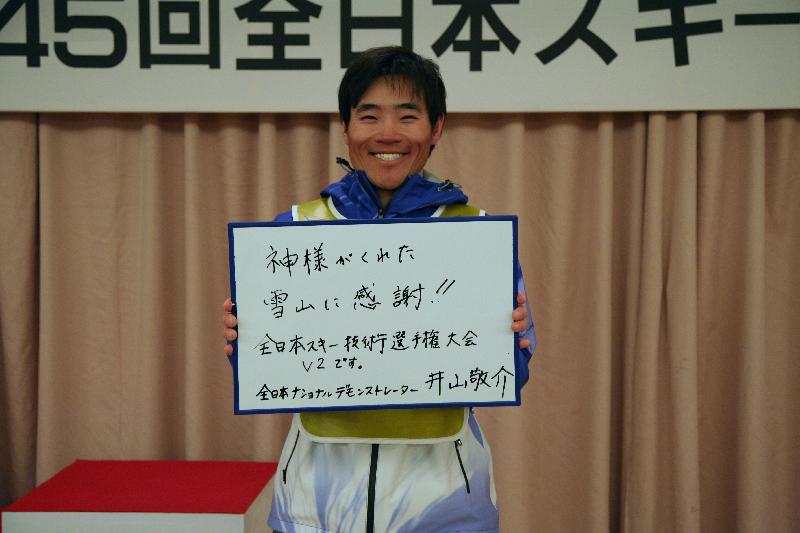 45回全日本スキー
神様がくれた
雪山に感謝!!
全日本スキー技術選手権大会
V2です。
全日本ナショナルデモンストレーター 井山敬介